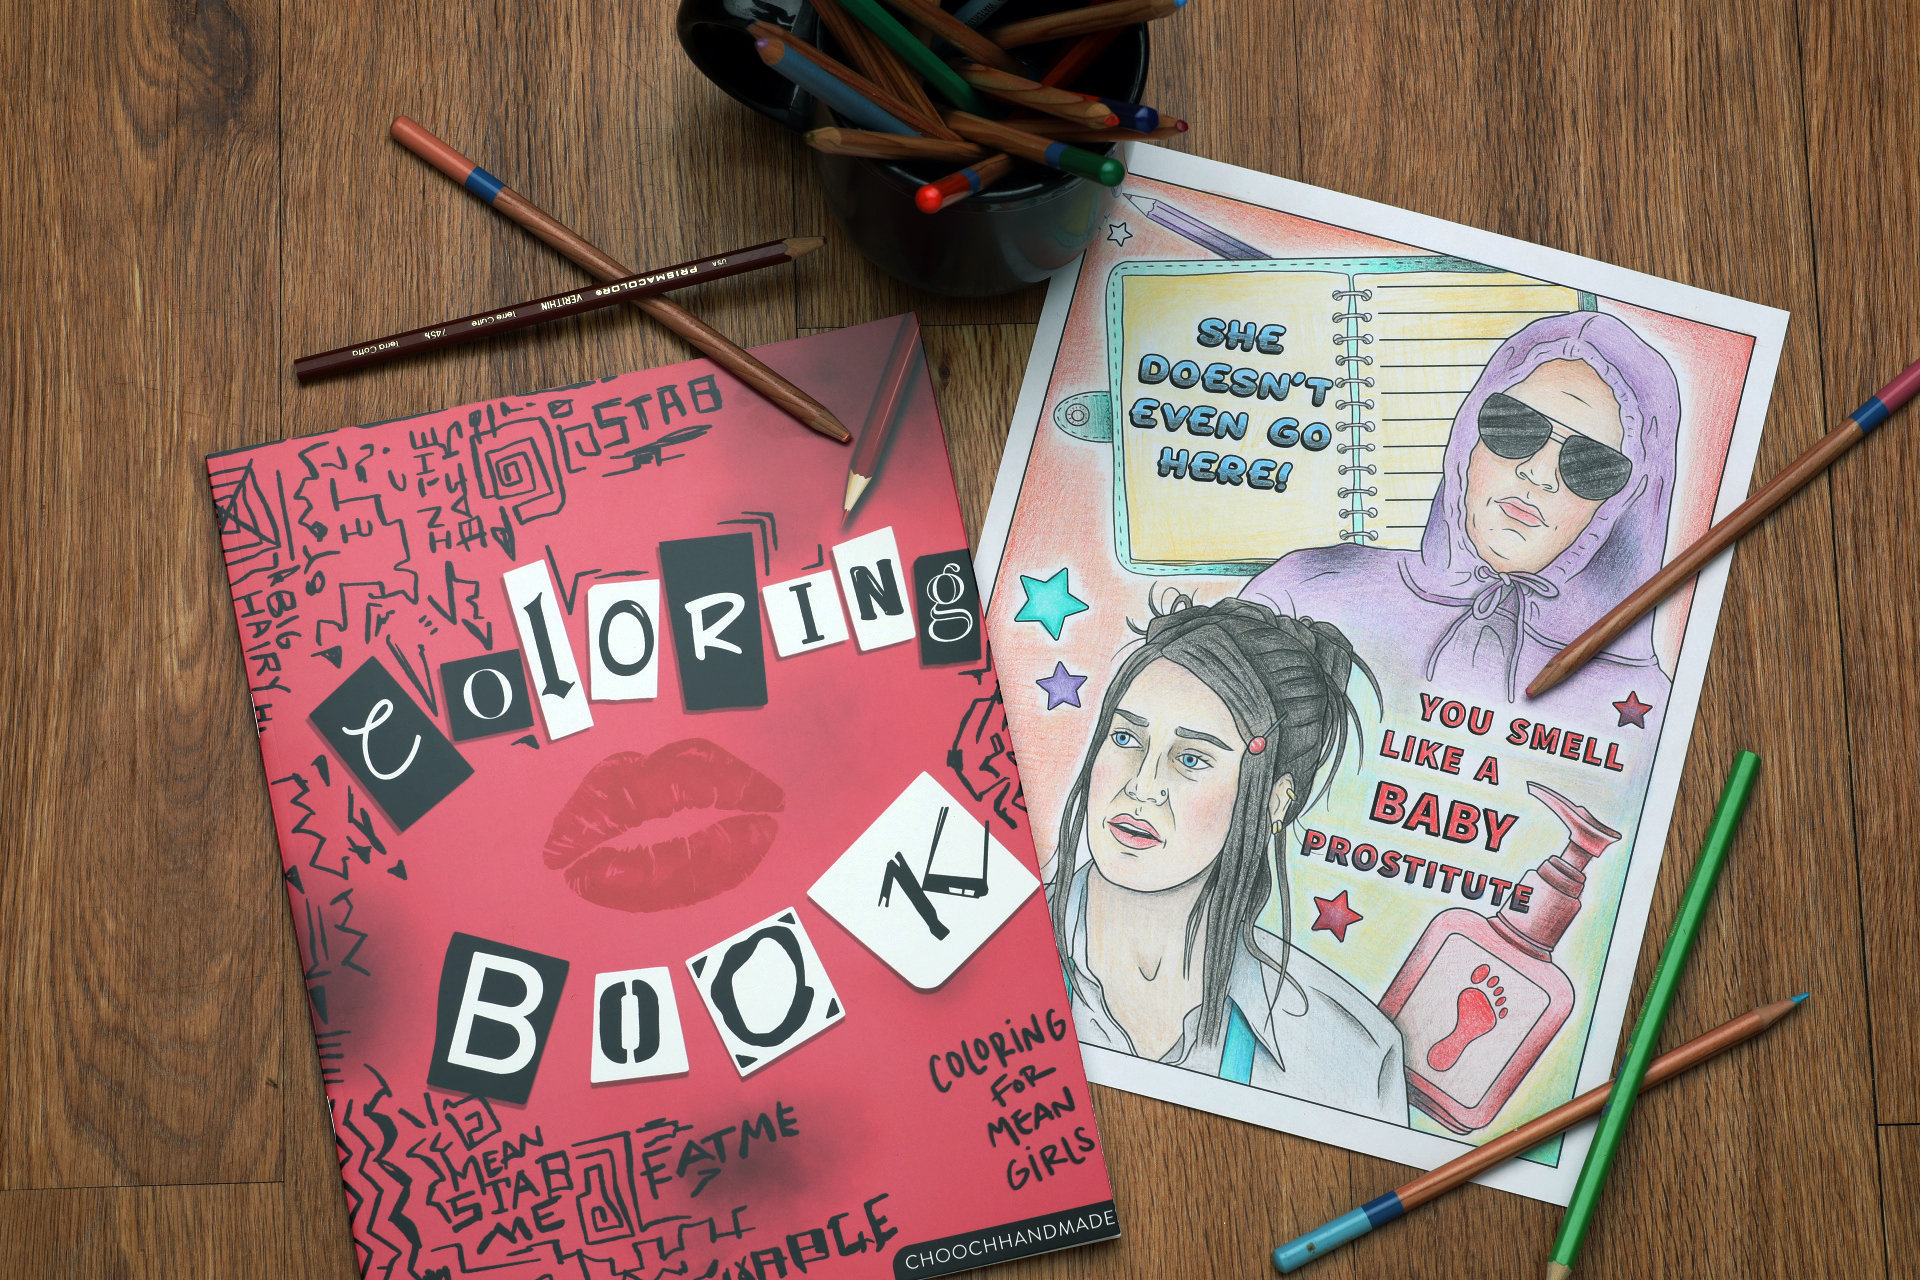 PRISMACOLOR® VERITHIN
Terra Cotta
745½
Terre Cuite
USA
STAB
IN THE
BACK
A BIG
HAIRY
COLORING
BOOK
COLORING
FOR
MEAN
GIRLS
EAT ME
MEAN
STAB
ME
CHOOCHHANDMADE
SHE
DOESN'T
EVEN GO
HERE!
YOU SMELL
LIKE A
BABY
PROSTITUTE